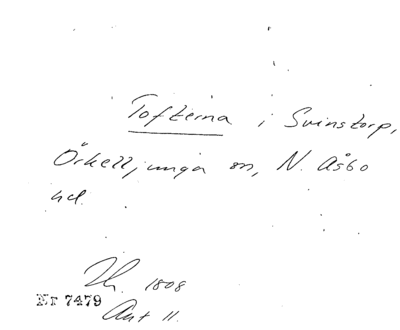 Tofterna i Svinstorp,
Örkelljunga sn, N. Åsbo
hd.
1808
Nr 7479
Ant 11.